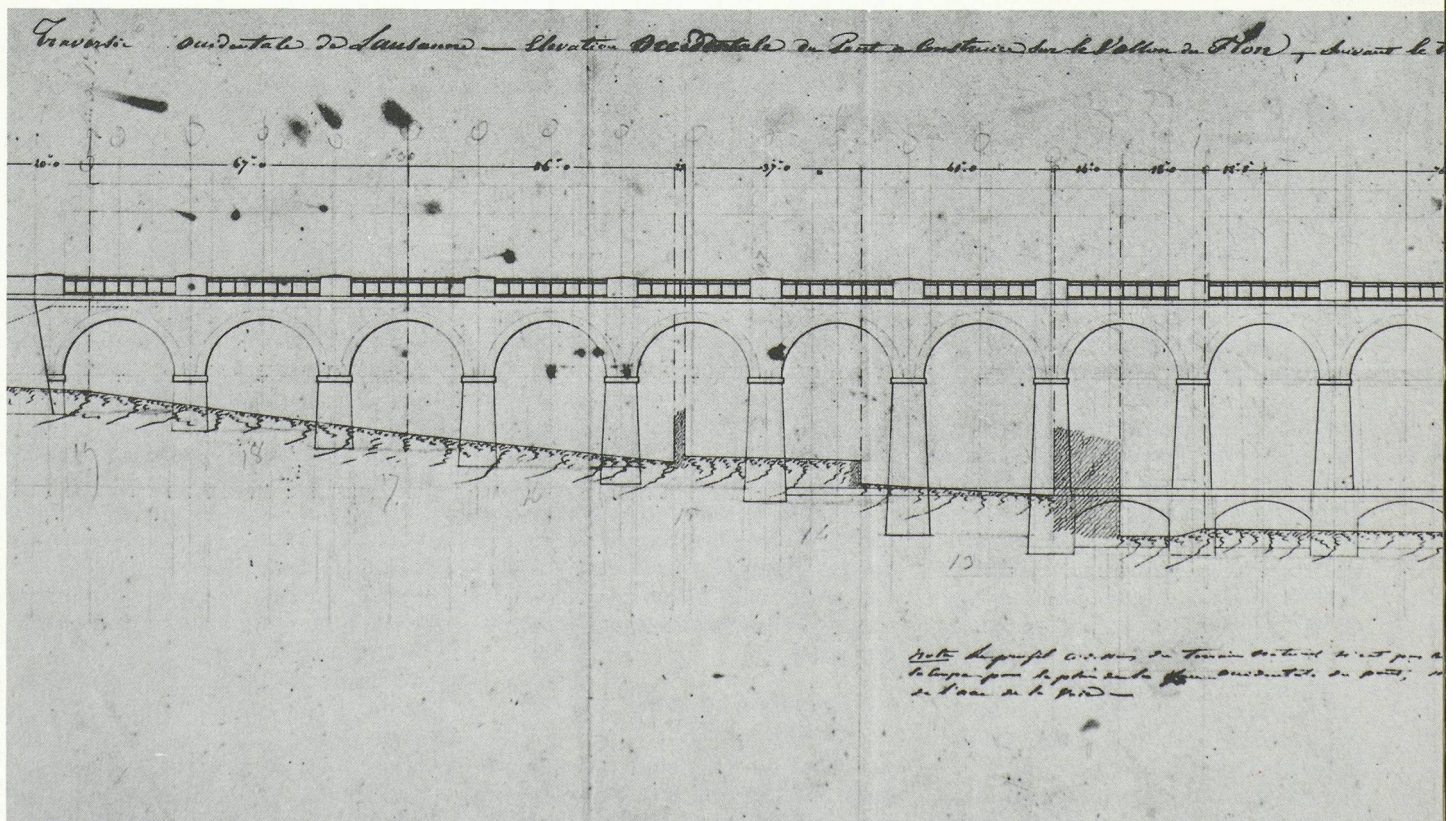 Traversée occidentale de Lausanne — Elevation Occidentale du Pont a Construire sur le Vallon du Flon, suivant le
20.0 67.0 66.0 37.0 40.0 14.0 18.0 12.5
19 18 17 16 15 14 13
Note Le profil ci-dessus du terrain naturel n'est pas
la coupe par le plan de la face occidentale du pont,
de l'axe de la